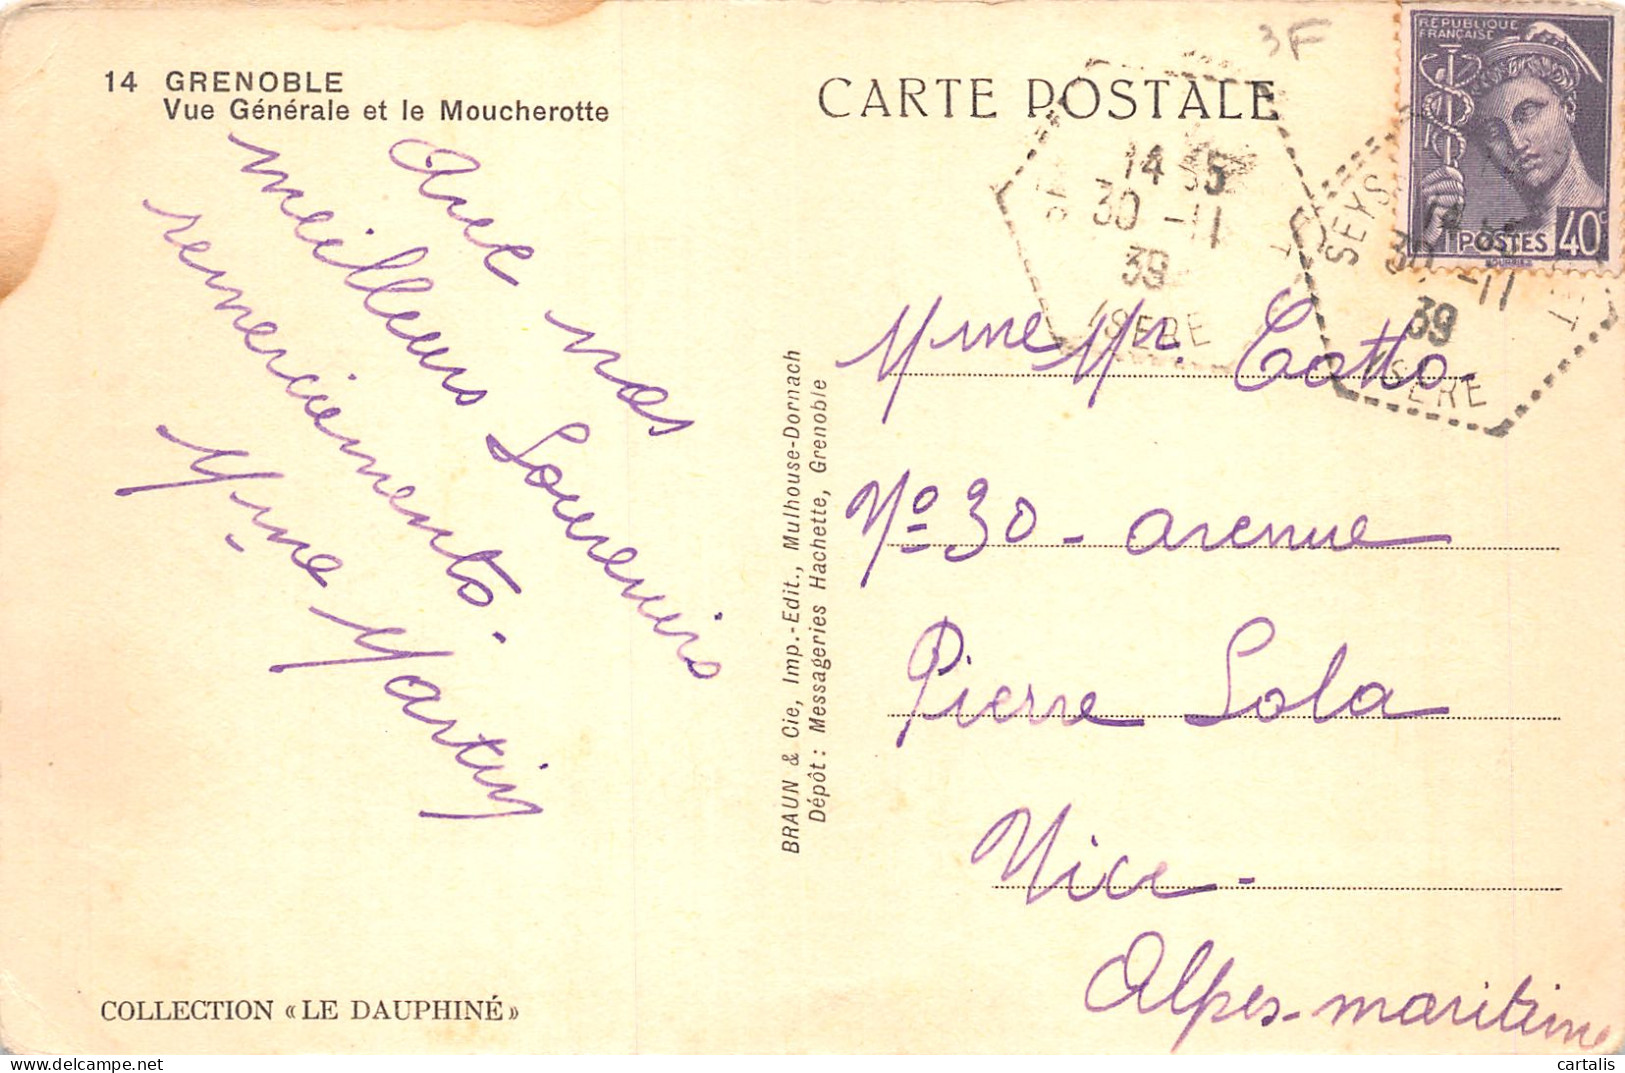 14 GRENOBLE
Vue Générale et le Moucherotte
Avec nos
meilleurs Souvenirs
remerciements.
Mme Martin
COLLECTION « LE DAUPHINÉ »
BRAUN & Cie, Imp.-Edit., Mulhouse-Dornach
Dépôt : Messageries Hachette, Grenoble
CARTE POSTALE
3F
14 35
30 -11
39
ISERE
RÉPUBLIQUE
FRANÇAISE
POSTES 40c
SEYS
30 -11
39
ISERE
Mme Mr. Cotto.
No 30 - avenue
Pierre Sola
Nice -
Alpes-maritime
cartalis